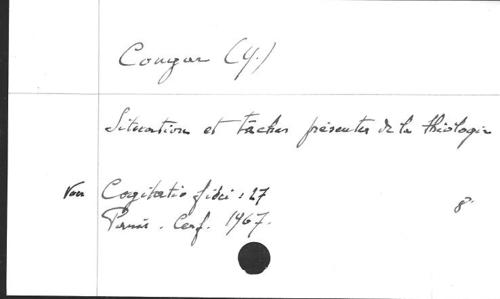 Congar (Y.)
Situation et tâches présentes de la théologie
Cogitatio fidei : 27
Paris. Cerf. 1967.
8°